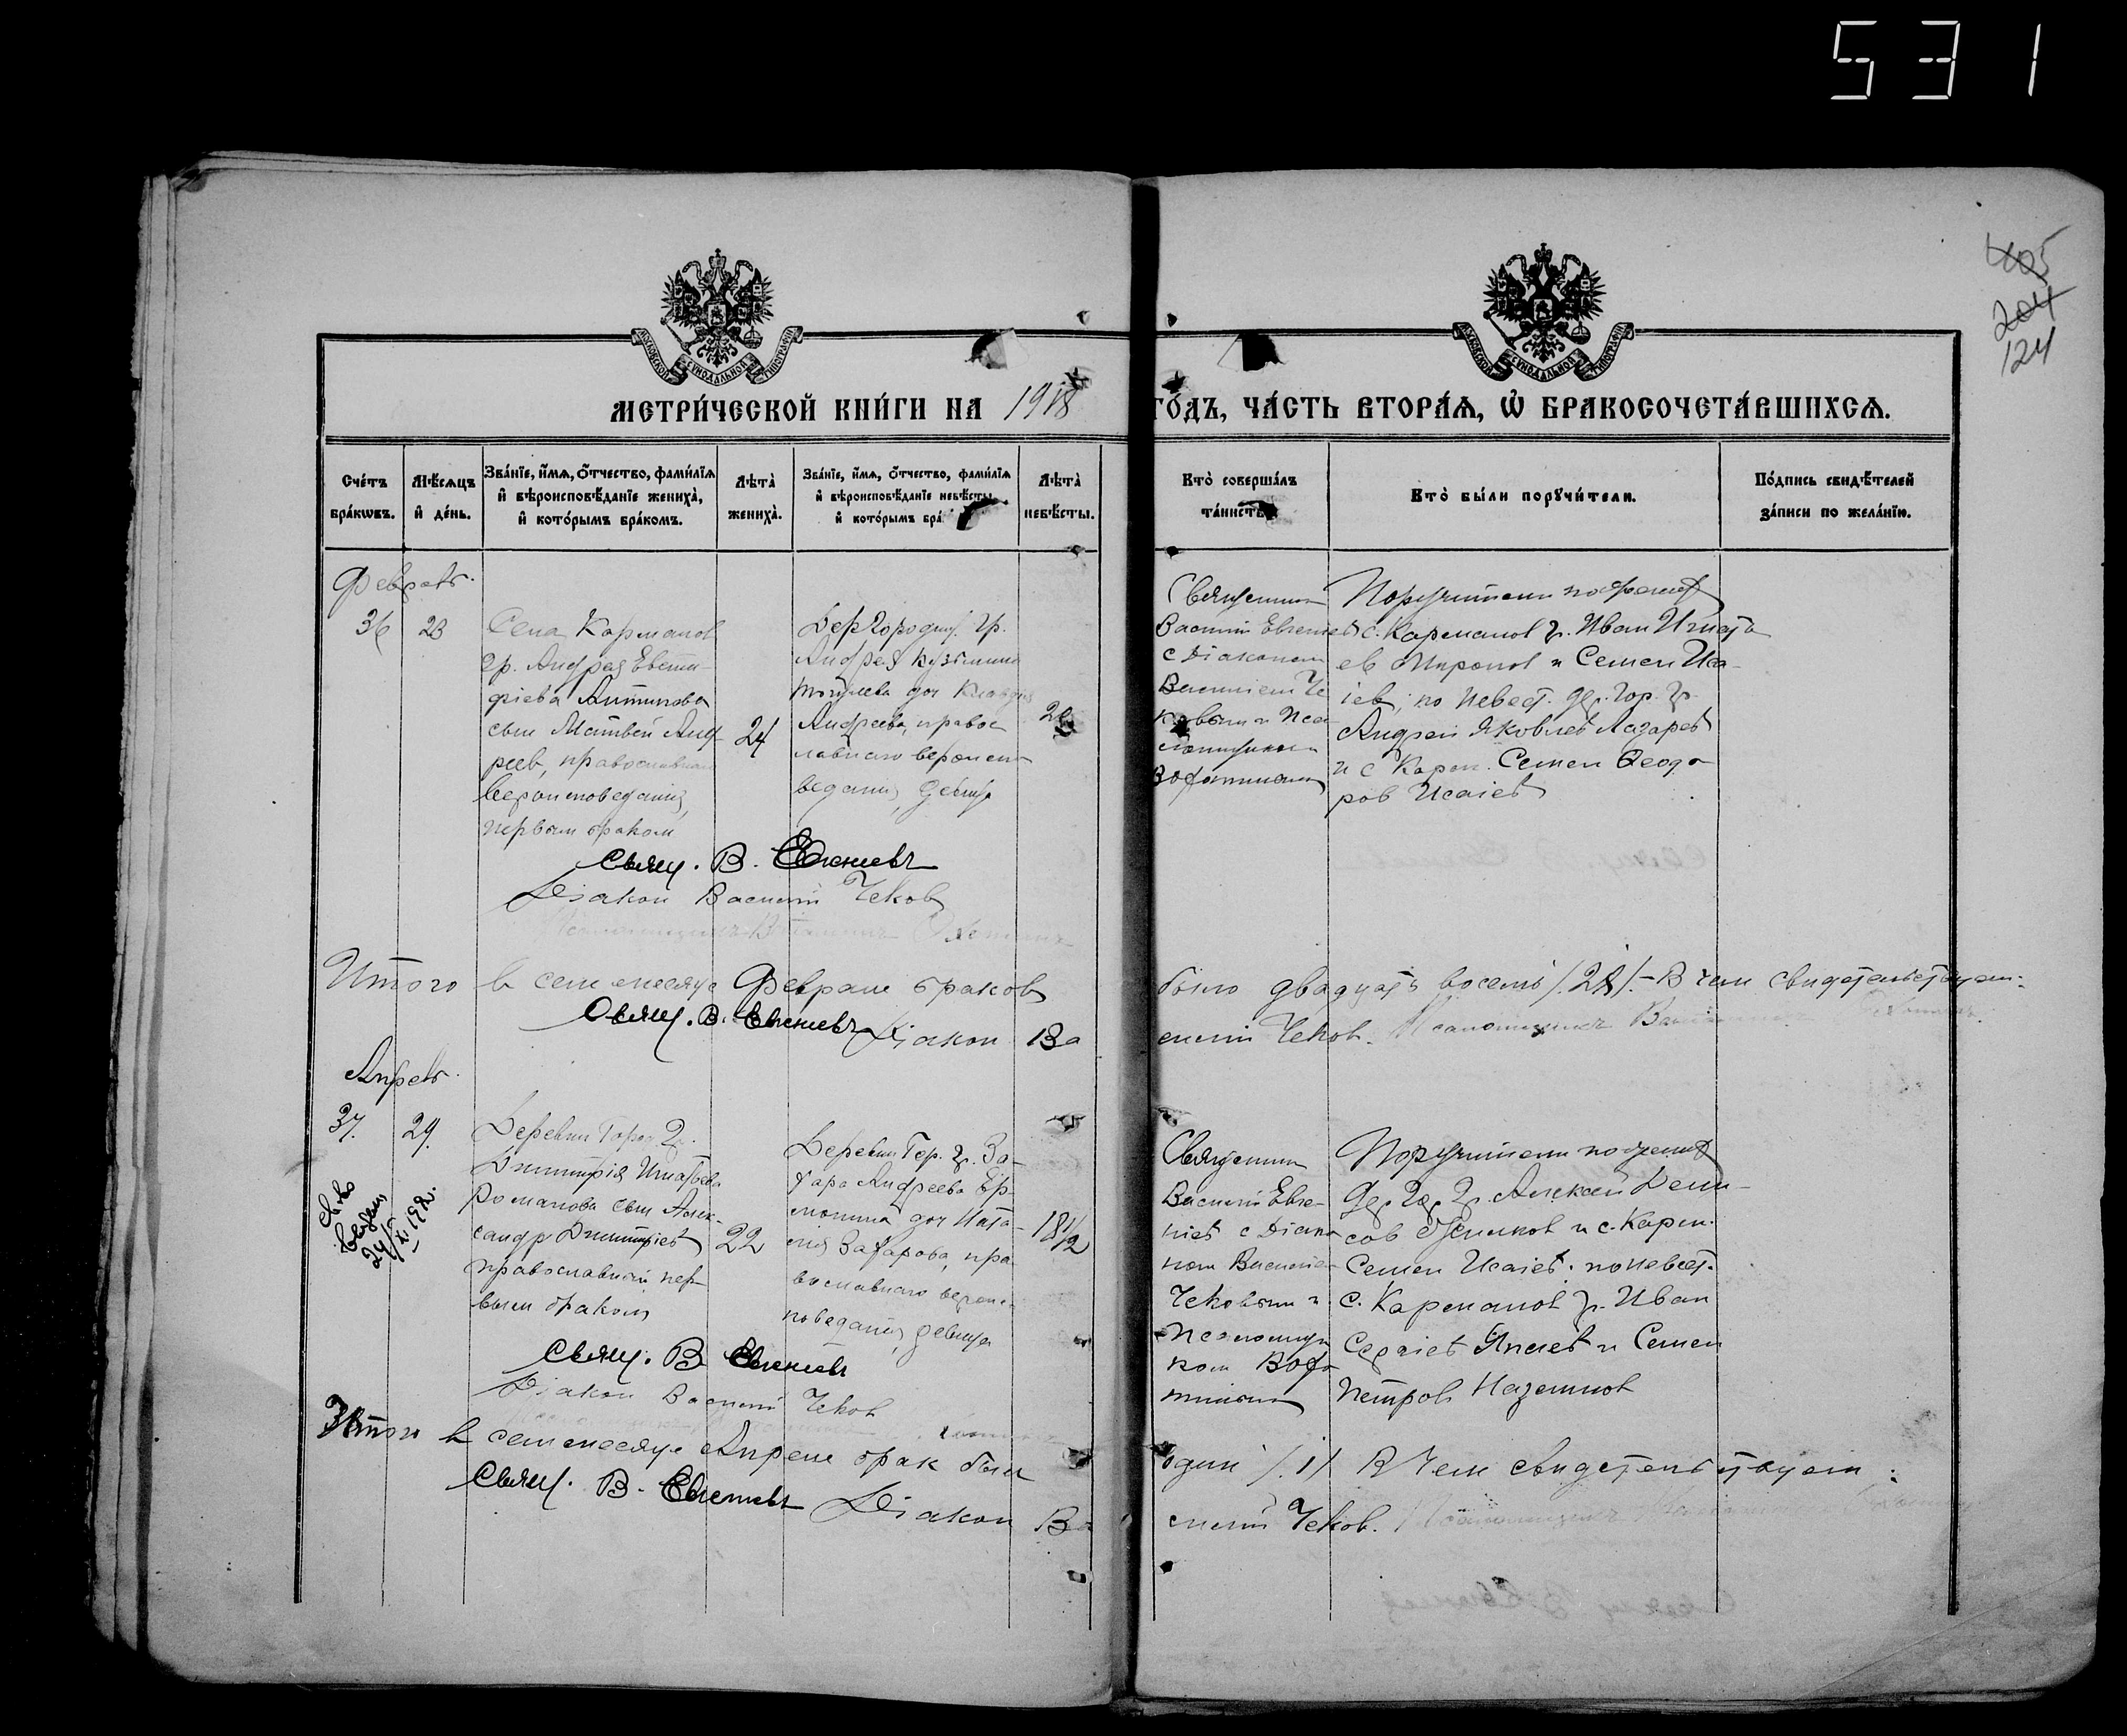 531
405
204
124
МОСКОВСКОЙ СѴНОДАЛЬНОЙ ТИПОГРАФІИ
МОСКОВСКОЙ СѴНОДАЛЬНОЙ ТИПОГРАФІИ
МЕТРИ́ЧЕСКОЙ КНИ́ГИ НА 1918 ГО́ДЪ, ЧА́СТЬ ВТОРА́Ѧ, Ѡ҆ БРАКОСОЧЕТА́ВШИХСѦ.
Сче́тъ бра́кѡвъ.
Мѣ́сѧцъ и҆ де́нь.
Зва́нїе, и҆́мѧ, ѻ҆́тчество, фами́лїѧ
и҆ вѣроисповѣ́данїе жениха̀,
и҆ кото́рымъ бра́комъ.
Лѣта̀ жениха̀.
Зва́нїе, и҆́мѧ, ѻ҆́тчество, фами́лїѧ
и҆ вѣроисповѣ́данїе невѣ́сты
и҆ кото́рымъ бра
Лѣта̀ невѣ́сты.
Кто̀ соверша́лъ
та́инств
Кто̀ бы́ли порꙋчи́тели.
По́дпись свидѣ́телей
за́писи по жела́нїю.
Февраль.
36
23
Села Карманов
гр. Андрея Евсти-
фіева Антипова
сын Матвей Анд-
реев, православнаго
вероисповедания,
первым браком
24
Дер. Городищ. гр.
Андрея Кузьмина
доч Клавдия
Андреева, правос
лавнаго вероиспо
ведания, девица
20
Священник
Василий Евгениев
с Діаконом
Василием Че
ковым и Пса
ломщиком
Поручители по жених
с. Карманов гр. Иван Игнать
ев Миронов и Семен Иса-
іев; по невест. дер. Гор. гр.
Андрей Яковлев Лазарев
и с Карм. Семен Феодо
ров Исаіев
Свящ. В. Евгениевъ
Діакон Василий Чеков
Псаломщикъ
Итого в сем месяце Феврале браков было двадцать восемь /28/. - В чем свидетельствуем:
Свящ. В. Евгениевъ Діакон Ва силий Чеков. Псаломщикъ
Апрель.
37.
29.
Деревни Город. гр.
Димитрія Игнатьева
Романова сын Алек-
сандр Димитріев
православный пер-
вым браком
22
Деревни Гор. гр. За-
хара Андреева Ер-
молина доч Ната-
лия Захарова, пра-
вославнаго вероис-
поведания, девица
18 1/2
Священник
Василий Евге-
ниев с Діако
ном Василие
Чековым и
Псаломщи
ком
Поручители по жених
Дер. Гор. гр. Алексей Дени-
сов и с. Карм.
Семен Исаіев; по невест.
с. Карманов гр. Иван
и Семен
Петров
Свящ. В. Евгениев
Діакон Василий Чеков
Итого в сем месяце Апреле брак был один /1/ В чем свидетельствуем:
Свящ. В. Евгениевъ Діакон Ва силий Чеков. Псаломщикъ